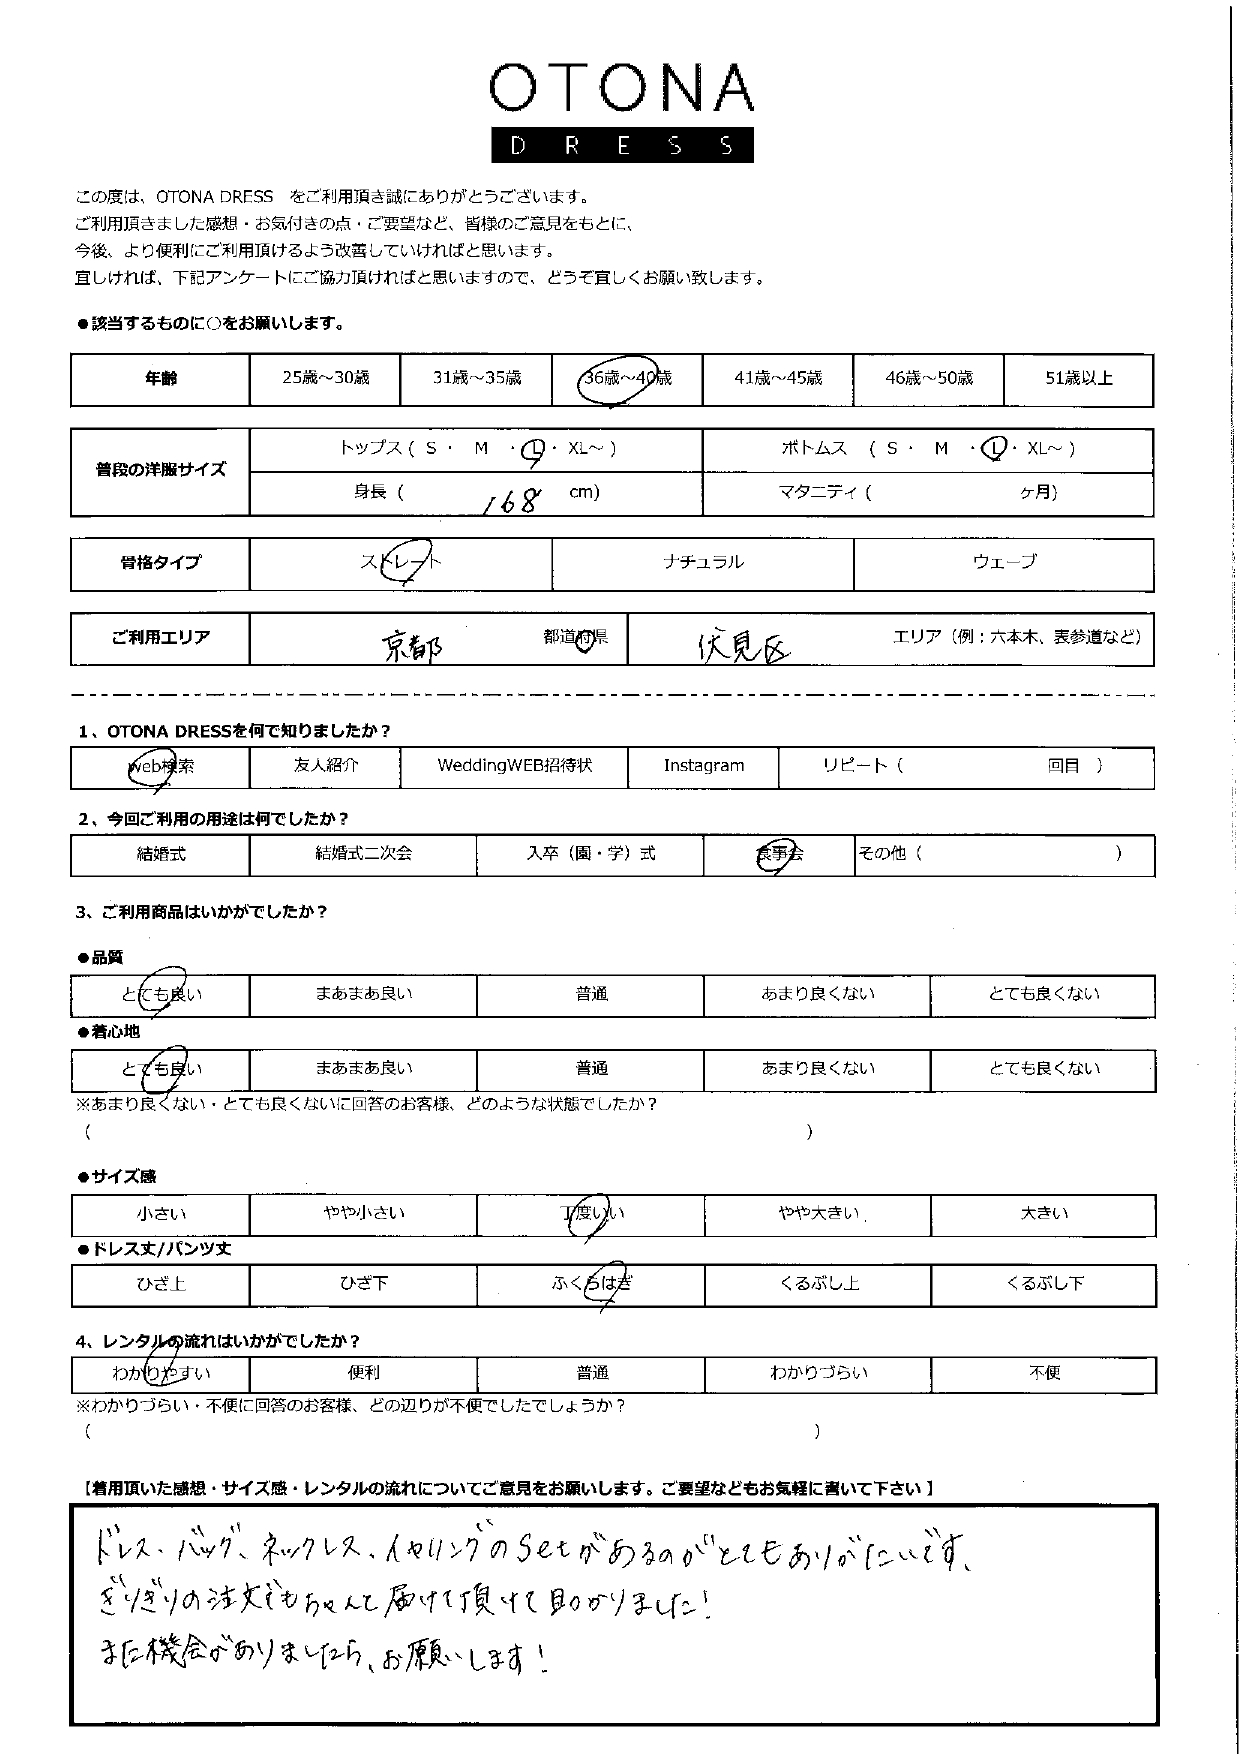 OTONA
DRESS
この度は、OTONA DRESS　をご利用頂き誠にありがとうございます。
ご利用頂きました感想・お気付きの点・ご要望など、皆様のご意見をもとに、
今後、より便利にご利用頂けるよう改善していければと思います。
宜しければ、下記アンケートにご協力頂ければと思いますので、どうぞ宜しくお願い致します。
●該当するものに○をお願いします。
年齢 25歳～30歳 31歳～35歳 36歳～40歳 41歳～45歳 46歳～50歳 51歳以上
普段の洋服サイズ トップス ( S ・ M ・ L ・ XL～ ) ボトムス ( S ・ M ・ L ・ XL～ )
身長 ( 168 cm) マタニティ ( ヶ月)
骨格タイプ ストレート ナチュラル ウェーブ
ご利用エリア 京都 都道府県 伏見区 エリア（例：六本木、表参道など）
1、OTONA DRESSを何で知りましたか？
web検索 友人紹介 WeddingWEB招待状 Instagram リピート（ 回目 ）
2、今回ご利用の用途は何でしたか？
結婚式 結婚式二次会 入卒（園・学）式 食事会 その他（ ）
3、ご利用商品はいかがでしたか？
●品質
とても良い まあまあ良い 普通 あまり良くない とても良くない
●着心地
とても良い まあまあ良い 普通 あまり良くない とても良くない
※あまり良くない・とても良くないに回答のお客様、どのような状態でしたか？
( )
●サイズ感
小さい やや小さい 丁度いい やや大きい 大きい
●ドレス丈/パンツ丈
ひざ上 ひざ下 ふくらはぎ くるぶし上 くるぶし下
4、レンタルの流れはいかがでしたか？
わかりやすい 便利 普通 わかりづらい 不便
※わかりづらい・不便に回答のお客様、どの辺りが不便でしたでしょうか？
( )
【着用頂いた感想・サイズ感・レンタルの流れについてご意見をお願いします。ご要望などもお気軽に書いて下さい】
ドレス・バッグ、ネックレス、イヤリングのSetがあるのがとてもありがたいです、
ぎりぎりの注文でもちゃんと届けて頂けて助かりました！
また機会がありましたら、お願いします！